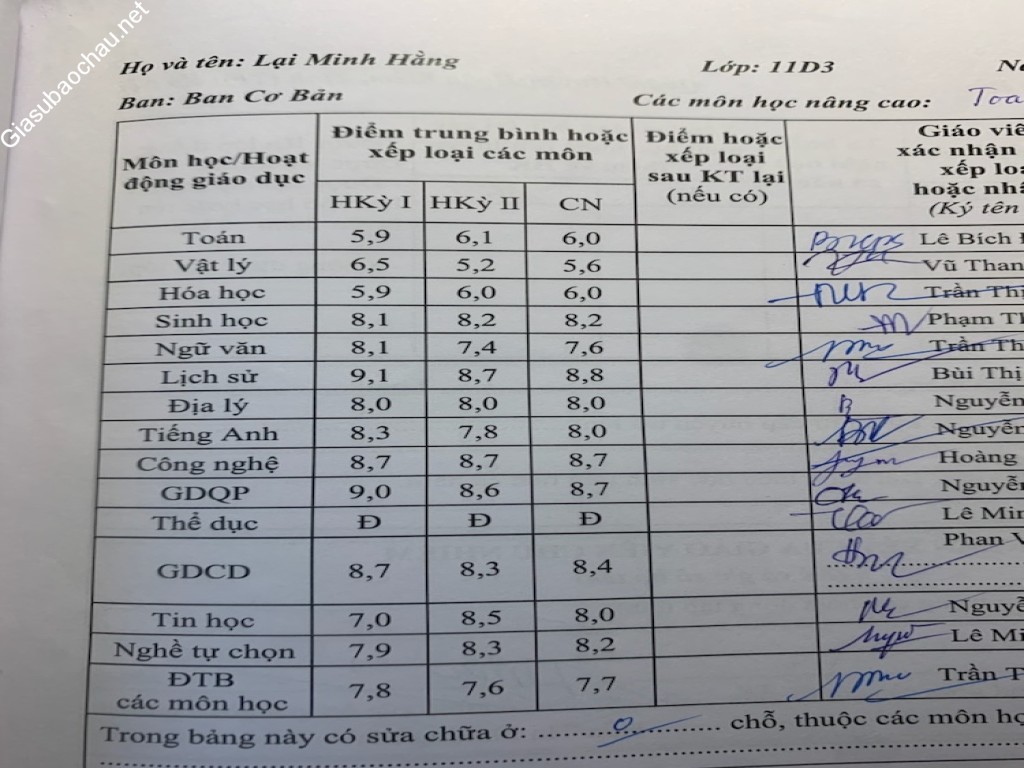 Giasubaochau.net
Họ và tên: Lại Minh Hằng Lớp: 11D3
Ban: Ban Cơ Bản Các môn học nâng cao:
Môn học/Hoạt động giáo dục Điểm trung bình hoặc xếp loại các môn Điểm hoặc xếp loại sau KT lại (nếu có) Giáo viê xác nhận xếp loạ hoặc nhậ (Ký tên
HKỳ I HKỳ II CN
Toán 5,9 6,1 6,0 Lê Bích
Vật lý 6,5 5,2 5,6 Vũ Than
Hóa học 5,9 6,0 6,0 Trần Thị
Sinh học 8,1 8,2 8,2 Phạm Th
Ngữ văn 8,1 7,4 7,6 Trần Th
Lịch sử 9,1 8,7 8,8 Bùi Thị
Địa lý 8,0 8,0 8,0 Nguyễn
Tiếng Anh 8,3 7,8 8,0 Nguyễn
Công nghệ 8,7 8,7 8,7 Hoàng
GDQP 9,0 8,6 8,7 Nguyễn
Thể dục Đ Đ Đ Lê Min
GDCD 8,7 8,3 8,4 Phan V
Tin học 7,0 8,5 8,0 Nguyễ
Nghề tự chọn 7,9 8,3 8,2 Lê Mi
ĐTB các môn học 7,8 7,6 7,7 Trần T
Trong bảng này có sửa chữa ở: ....0.... chỗ, thuộc các môn họ